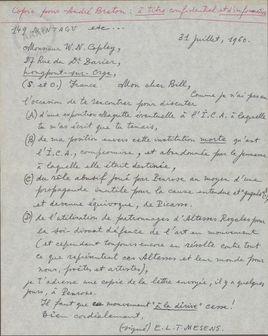 Copie pour André Breton : à titre confidentiel et d'information
149 MONTAGU etc...
31 juillet, 1960.
Monsieur W. N. Copley,
27 Rue du Dr Darier,
Longpont-sur-Orge,
(S. et O.) France Mon cher Bill,
Comme je n'ai pas eu
l'occasion de te rencontrer pour discuter
(A) d'une exposition Magritte éventuelle à l'I.C.A. à laquelle
tu m'as écrit que tu tenais,
(B) de ma position envers cette institution morte qu'est
l'I.C.A., compromise, et abandonnée par la pensée
à laquelle elle était destinée,
(C) du rôle abusif joué par Penrose au moyen d'une
propagande inutile pour la cause entendue et
devenue équivoque, de Picasso.
(D) de l'utilisation de patronages d'Altesses Royales pour
la soi-disant défense de l'art en mouvement
(et cependant toujours encore en révolte contre tout
ce que représentent ces Altesses et leur monde pour
nous, poètes et artistes),
je t'adresse une copie de la lettre envoyée, il y a quelques
jours, à Penrose.
Il faut que ce mouvement "à la dérive" cesse!
Bien cordialement,
(signé) E.L.T. MESENS.